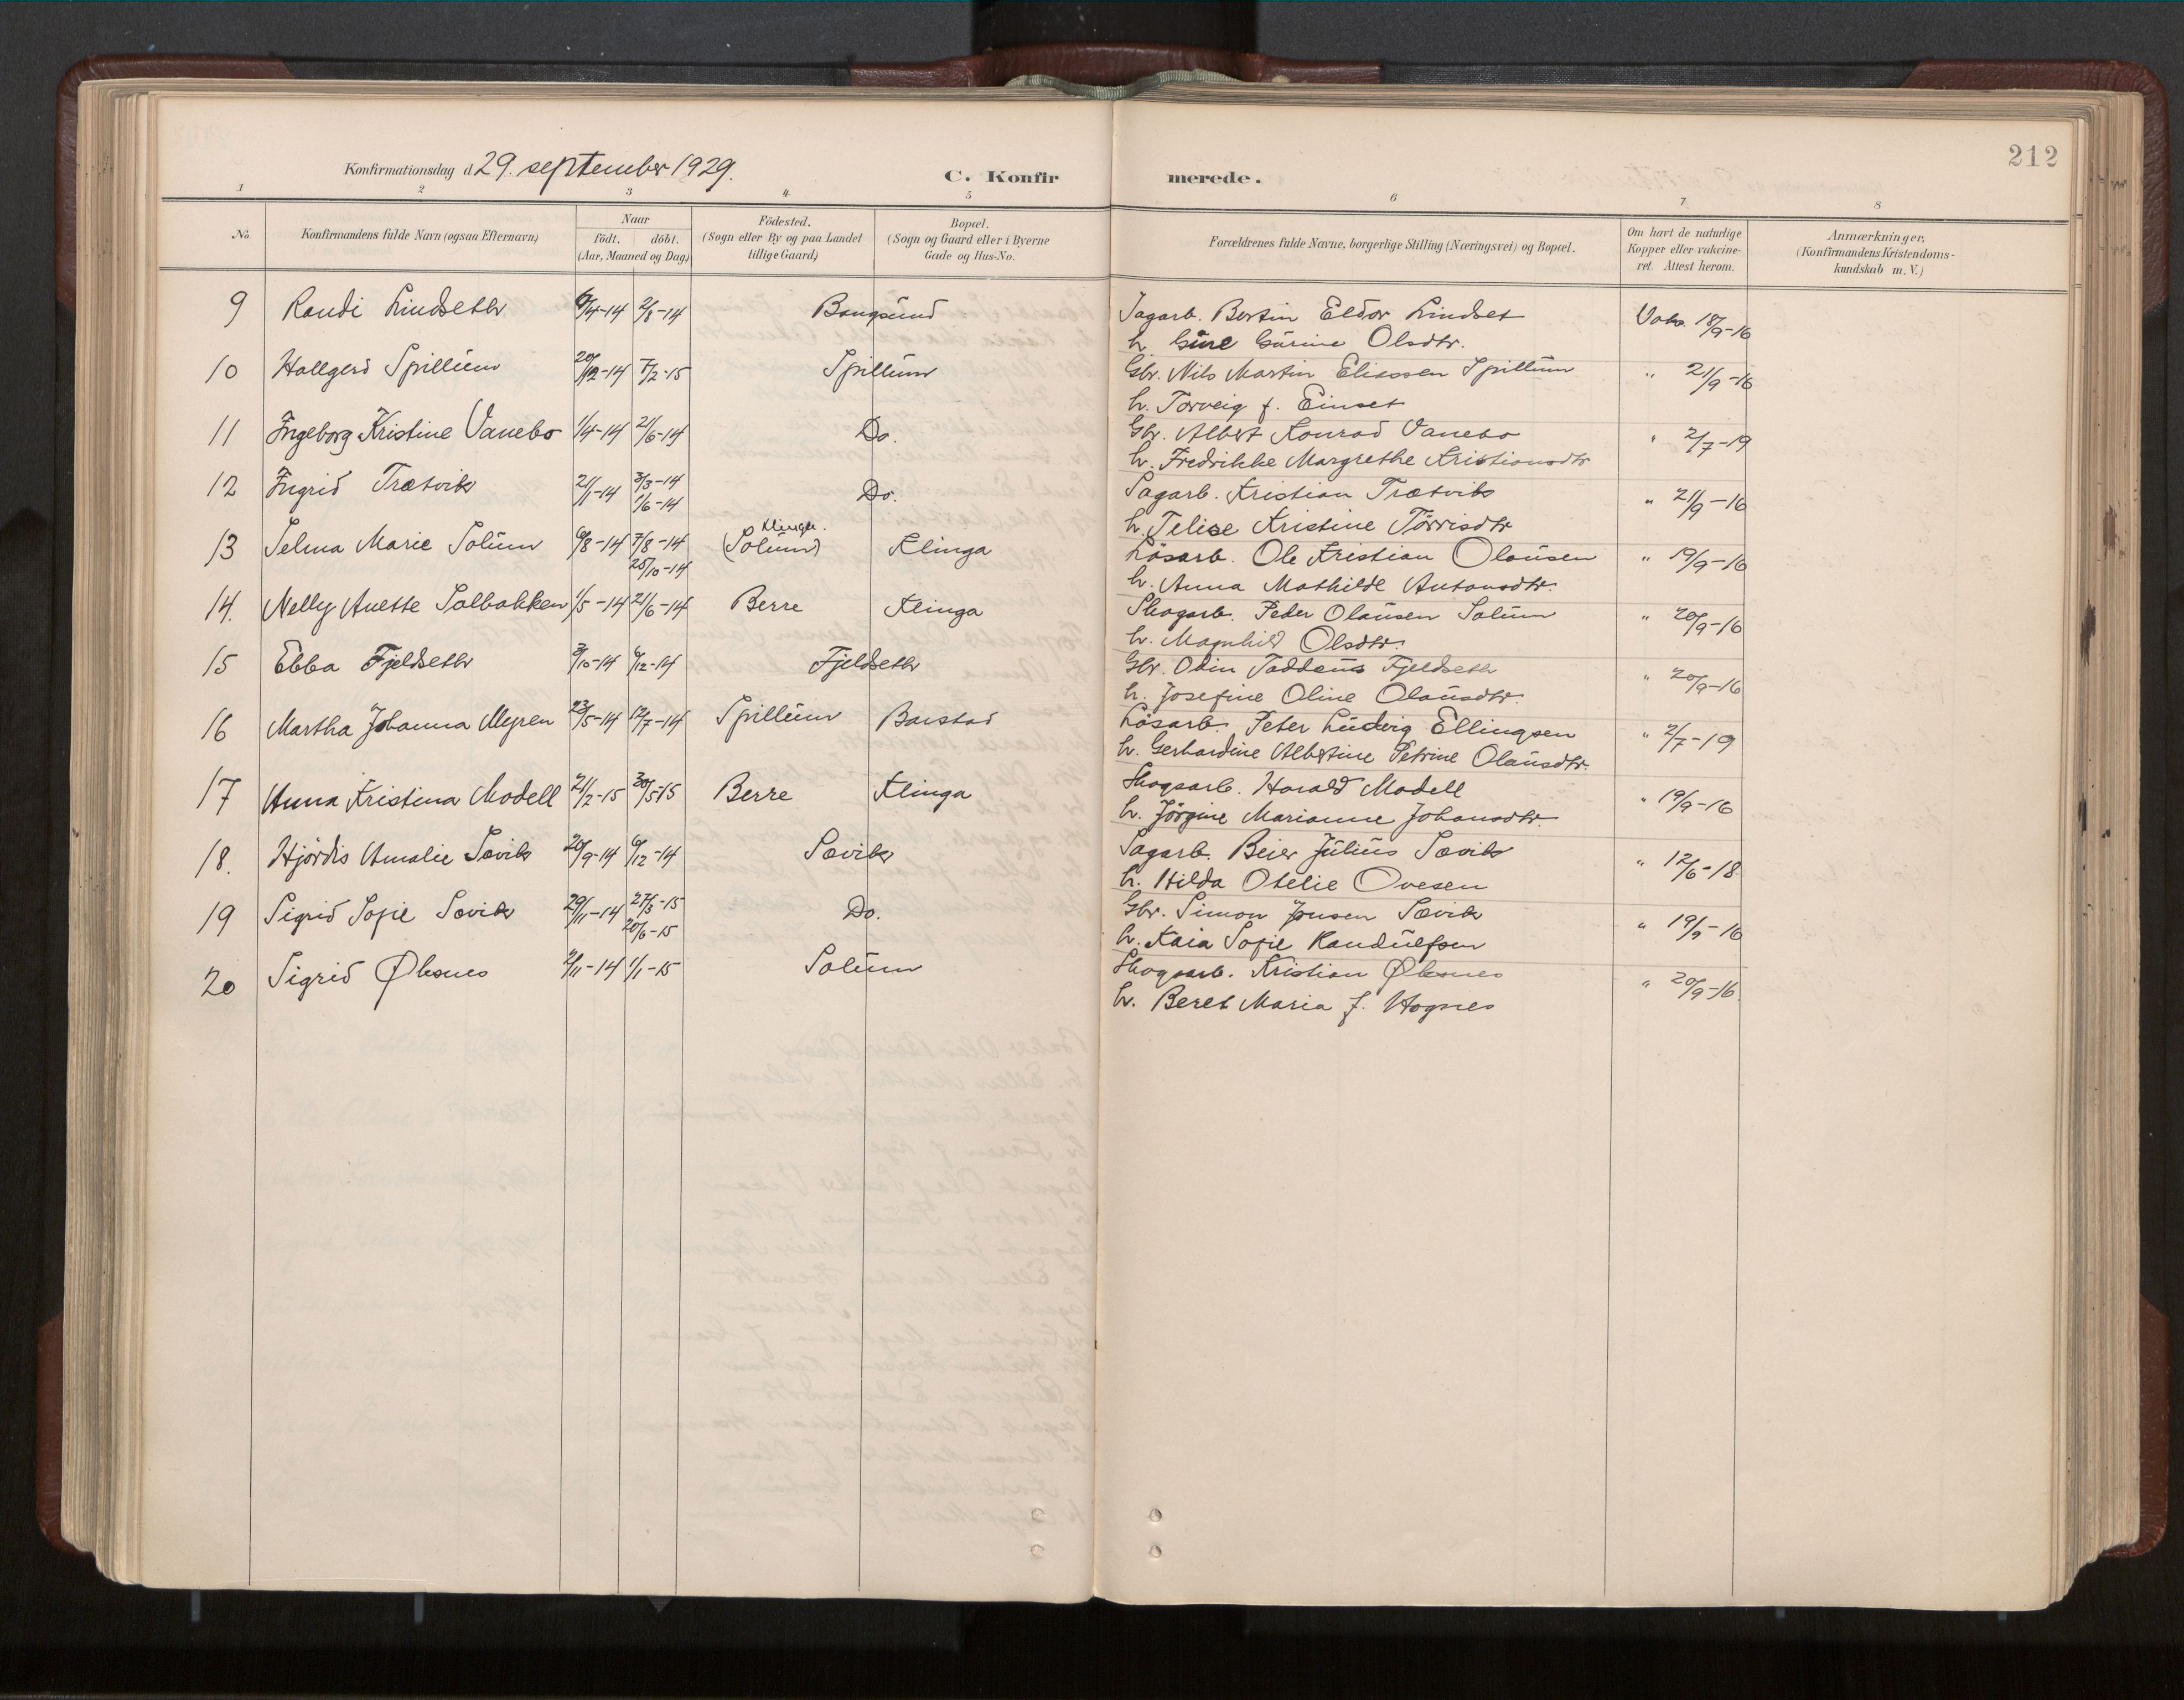 212
Konfirmationsdag d 29. september 1929.
C. Konfirmerede.
1 2 3 4 5 6 7 8
No. Konfirmandens fulde Navn (ogsaa Efternavn) Naar födt. döbt. (Aar, Maaned og Dag) Födested. (Sogn eller By og paa Landet tillige Gaard) Bopæl. (Sogn og Gaard eller i Byerne Gade og Hus-No. Forældrenes fulde Navne, borgerlige Stilling (Næringsvei) og Bopæl. Om havt de naturlige Kopper eller vakcineret. Attest herom. Anmærkninger, (Konfirmandens Kristendomskundskab m. V.)
9 Randi Lindseth 6/4-14 2/8-14 Bangsund Sagarb. Bertin Eldor Lindset Vak. 18/9-16
h. Gürine Olsdtr.
10 Hallgerd Spillum 20/12-14 7/2-15 Spillum Gbr. Nils Martin Eliassen Spillum " 21/9-16
h. Torveig f. Einset
11 Ingeborg Kristine Vanebo 1/4-14 21/6-14 Do. Gbr. Albert Konrad Vanebo " 2/7-19
h. Fredrikke Margrethe Kristiansdtr
12 Ingrid Trætvik 21/1-14 3/3-14 Do. Sagarb. Kristian Trætvik " 21/9-16
1/6-14 h. Telise Kristine Törrisdtr
13 Selma Marie Solum 6/8-14 7/8-14 Klinga. (Solum) Klinga Lösarb. Ole Kristian Olausen " 19/9-16
25/10-14 h. Anna Mathilde Antonsdtr.
14. Nelly Anette Solbakken 1/5-14 21/6-14 Berre Klinga Skogarb. Peder Olausen Solum " 20/9-16
h. Magnhild Olsdtr.
15 Ebba Fjeldseth 3/10-14 6/12-14 Fjeldseth Gbr. Odin Taddeus Fjeldseth " 20/9-16
h. Josefine Oline Olausdtr.
16 Martha Johanna Myren 23/5-14 12/7-14 Spillum Barstad Lösarb. Peter Ludvig Ellingsen " 2/7-19
h. Gerhardine Albertine Petrine Olausdtr.
17 Anna Kristina Modell 21/2-15 30/5-15 Berre Klinga Skogsarb. Harald Modell " 19/9-16
h. Jörgine Marianne Johansdtr.
18. Hjördis Amalie Sævik 20/9-14 6/12-14 Sævik Sagarb. Beier Julius Sævik " 12/6-18
h. Hilda Otelie Ovesen
19 Sigrid Sofie Sævik 29/11-14 27/3-15 Do. Gbr. Simon Jensen Sævik " 19/9-16
20/6-15 h. Kaia Sofie Randulfsen
20 Sigrid Øksnes 2/11-14 1/1-15 Solum Skogsarb. Kristian Øksnes " 20/9-16.
h. Beret Maria f. Hognes